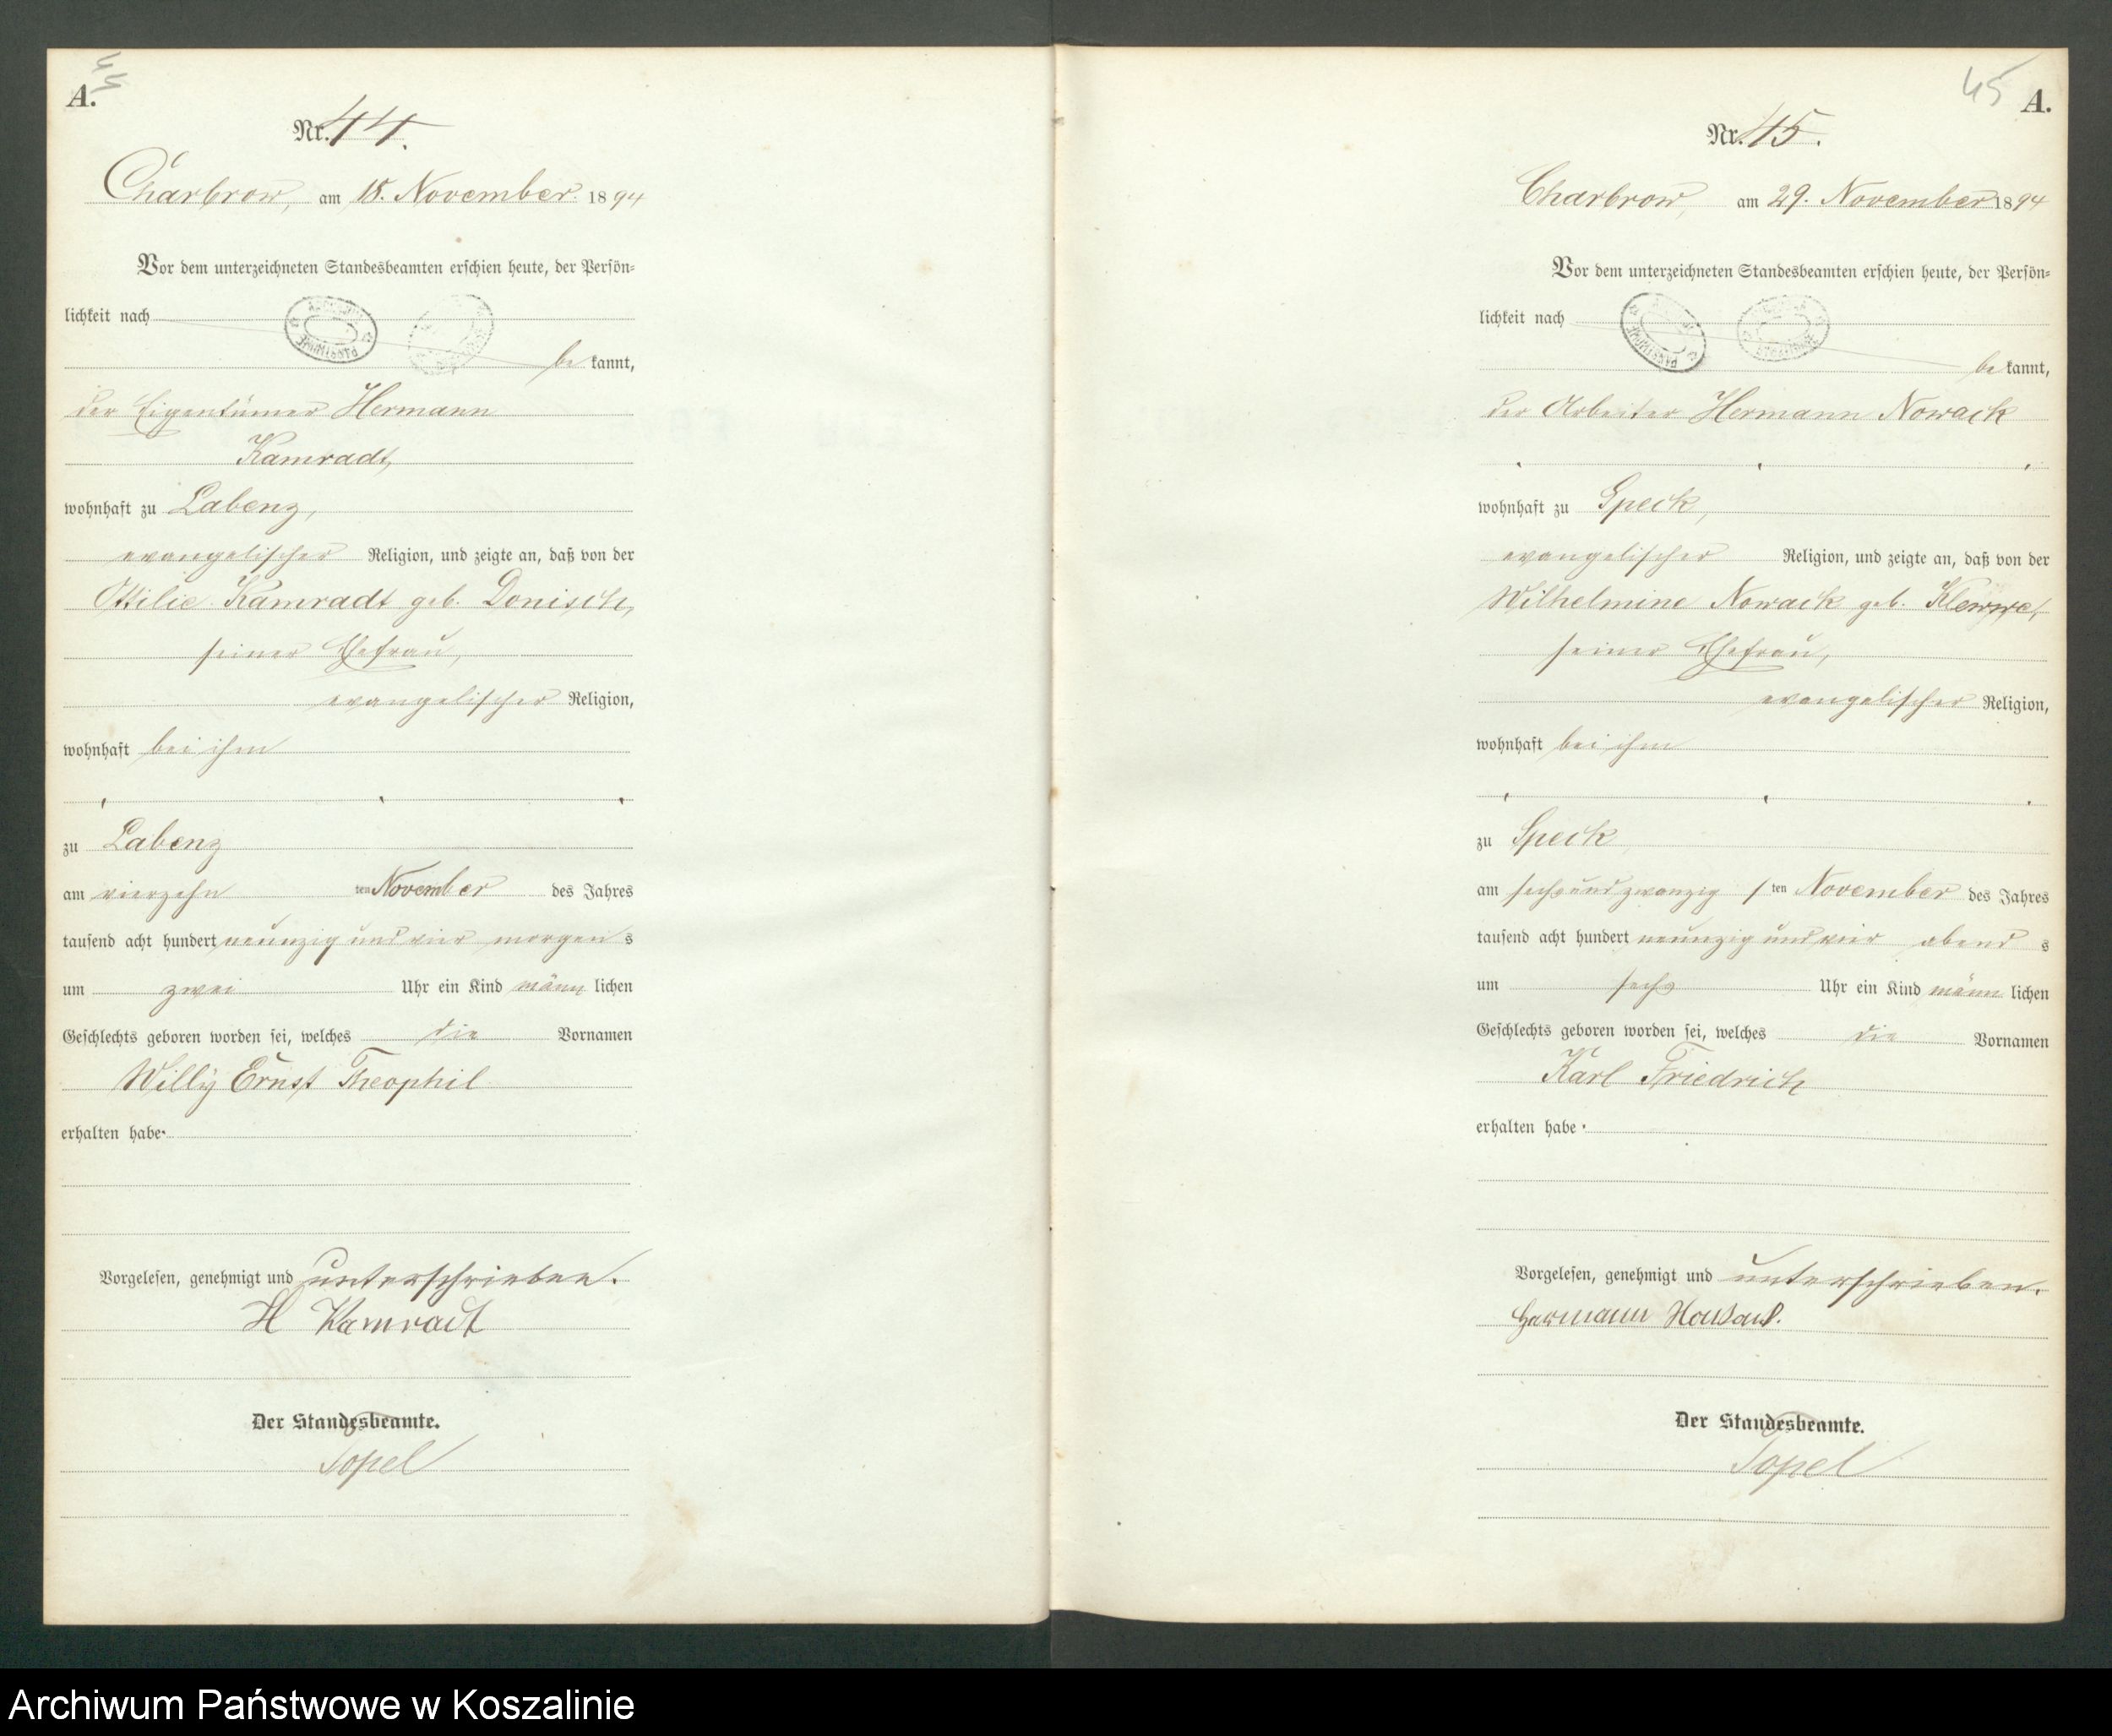 44
A.
Nr. 44.
Charbrow, am 15. November 1894
Vor dem unterzeichneten Standesbeamten erschien heute, der Persön=
lichkeit nach
be kannt,
der Eigentümer Hermann
Kamradt,
wohnhaft zu Labenz,
evangelischer Religion, und zeigte an, daß von der
Ottilie Kamradt geb. Donisch,
seiner Ehefrau,
evangelischer Religion,
wohnhaft bei ihm
zu Labenz
am vierzehn ten November des Jahres
tausend acht hundert neunzig und vier morgen s
um zwei Uhr ein Kind männ lichen
Geschlechts geboren worden sei, welches die Vornamen
Willy Ernst Theophil
erhalten habe.
Vorgelesen, genehmigt und unterschrieben.
H Kamradt
Der Standesbeamte.
Topel
45
A.
Nr. 45.
Charbrow, am 29. November 1894
Vor dem unterzeichneten Standesbeamten erschien heute, der Persön=
lichkeit nach
be kannt,
der Arbeiter Hermann Nowack
wohnhaft zu Speck,
evangelischer Religion, und zeigte an, daß von der
Wilhelmine Nowack geb.
seiner Ehefrau,
evangelischer Religion,
wohnhaft bei ihm
zu Speck,
am sechsundzwanzig ten November des Jahres
tausend acht hundert neunzig und vier abend s
um sechs Uhr ein Kind männ lichen
Geschlechts geboren worden sei, welches die Vornamen
Karl Friedrich
erhalten habe.
Vorgelesen, genehmigt und unterschrieben.
Hermann Nowack.
Der Standesbeamte.
Topel
Archiwum Państwowe w Koszalinie